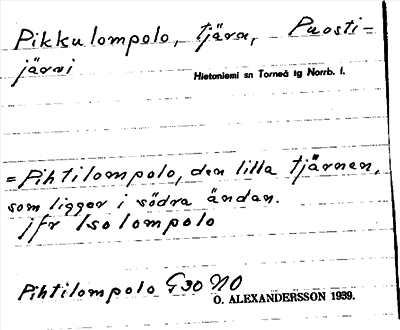 Pikkulompolo, tjärn, Puosti=
järvi
Hietaniemi sn Torneå tg Norrb. l.
= Pihtilompolo, den lilla tjärnen,
som ligger i södra ändan.
jfr Isolompolo
Pihtilompolo G30 NO
O. ALEXANDERSSON 1939.